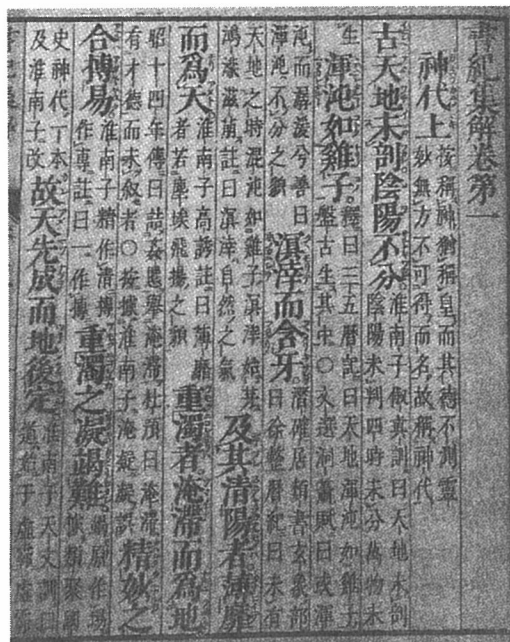 書紀集解卷第一
神代上
按稱神猶稱皇而其德不測靈
妙無方不可得而名故稱神代
古天地未剖陰陽不分
淮南子俶真訓曰天地未剖
陰陽未判四時未分萬物未
生
渾沌如雞子
釋曰三五曆記曰天地渾沌如雞子
盤古生其中○文選洞簫賦曰或渾
沌而潺湲兮善曰
渾沌不分之貌
溟涬而含牙
潛確居類書玄象部
曰徐整曆紀曰未有
天地之時混沌如雞子溟涬始牙
鴻濛滋萌註曰溟涬自然之氣
及其清陽者薄靡
而爲天
淮南子高誘註曰薄靡
者若塵埃飛揚之貌
重濁者淹滯而爲地
昭十四年傳曰詰姦慝舉淹滯杜預曰淹滯
有才德而未叙者○按據淮南子淹疑凝誤
精妙之
合搏易
淮南子精作清搏
作專註曰一作摶
重濁之凝竭難
竭原作場
依類聚國
史神代丁本
及淮南子改
故天先成而地後定
淮南子天文訓曰
道始于虛霩虛霩